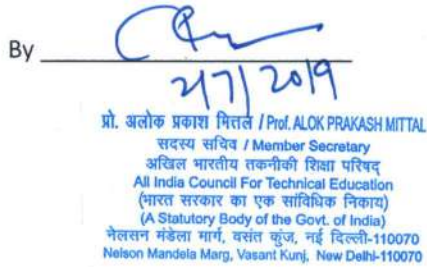 By
2/7/2019
प्रो. अलोक प्रकाश मित्तल / Prof. ALOK PRAKASH MITTAL
सदस्य सचिव / Member Secretary
अखिल भारतीय तकनीकी शिक्षा परिषद्
All India Council For Technical Education
(भारत सरकार का एक सांविधिक निकाय)
(A Statutory Body of the Govt. of India)
नेलसन मंडेला मार्ग, वसंत कुंज, नई दिल्ली-110070
Nelson Mandela Marg, Vasant Kunj, New Delhi-110070